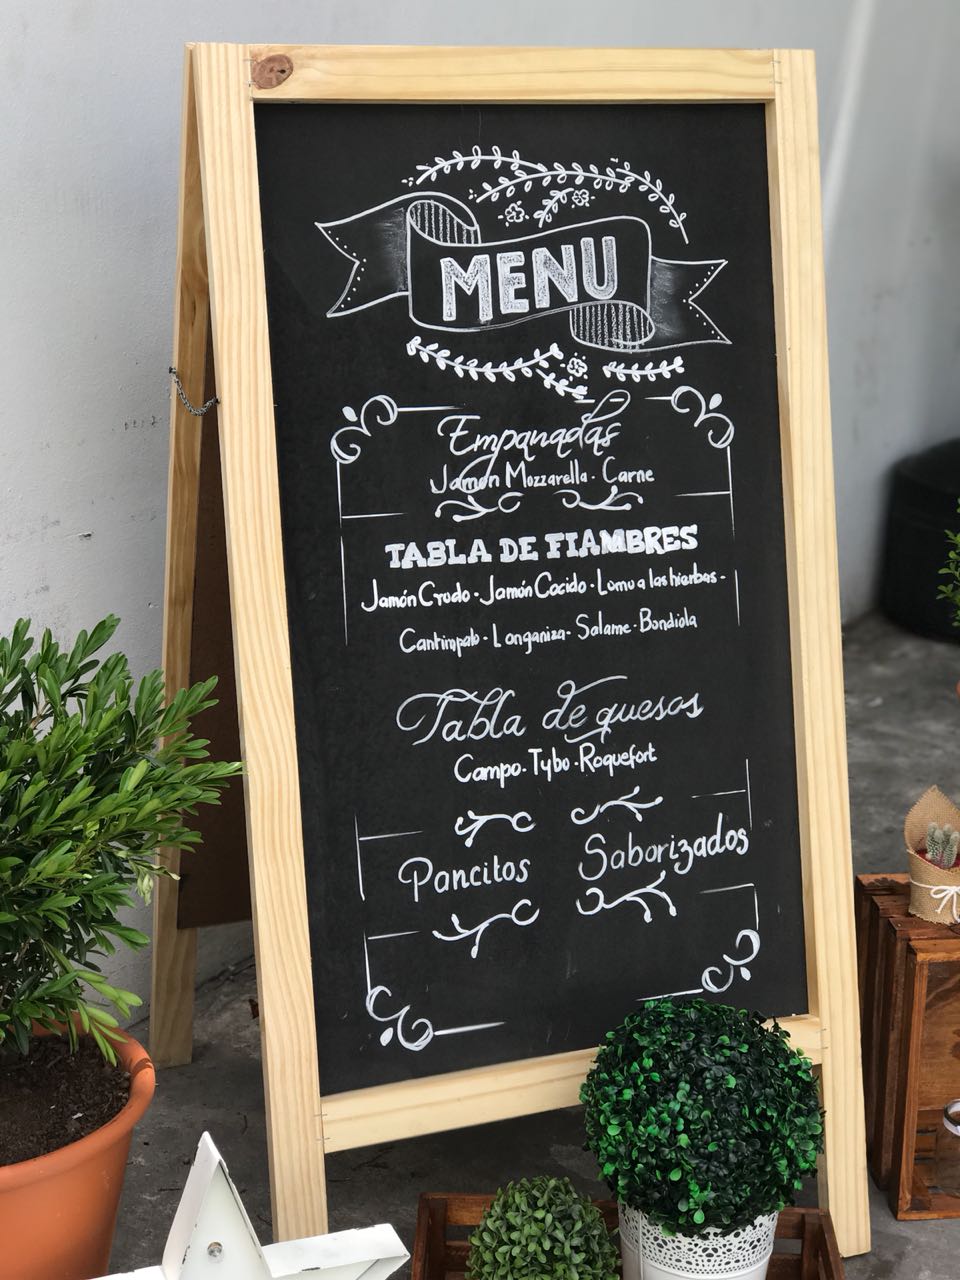 MENU
Empanadas
Jamón Mozzarella · Carne
TABLA DE FIAMBRES
Jamón Crudo · Jamón Cocido · Lomo a las hierbas ·
Cantimpalo · Longaniza · Salame · Bondiola
Tabla de quesos
Campo · Tybo · Roquefort
Pancitos Saborizados